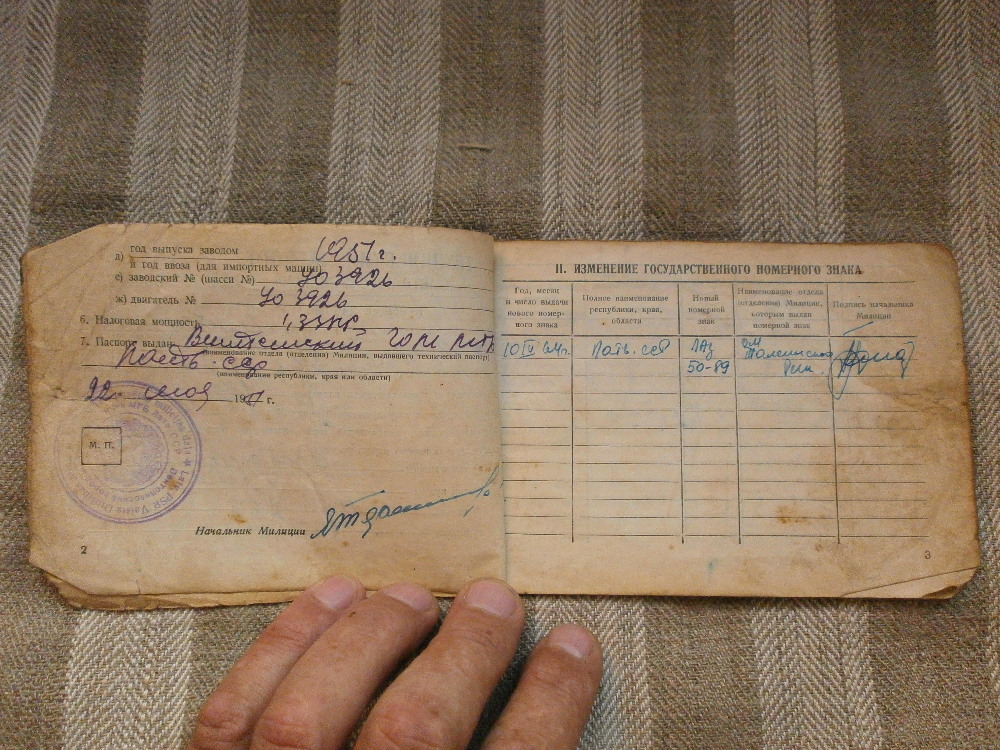 д) год выпуска заводом
и год ввоза (для импортных машин) 1951 г.
е) заводский № (шасси №) 703926
ж) двигатель № 703926
6. Налоговая мощность
7. Паспорт выдан
(наименование отдела (отделения) Милиции, выдавшего технический паспорт)
ССР
(наименование республики, края или области)
22 мая 1951 г.
М. П.
Начальник Милиции
2
II. ИЗМЕНЕНИЕ ГОСУДАРСТВЕННОГО НОМЕРНОГО ЗНАКА
Год, месяц и число выдачи нового номерного знака
Полное наименование республики, края, области
Новый номерной знак
Наименование отдела (отделения) Милиции, которым выдан номерной знак
Подпись начальника Милиции
Латв. ССР
50-89
3